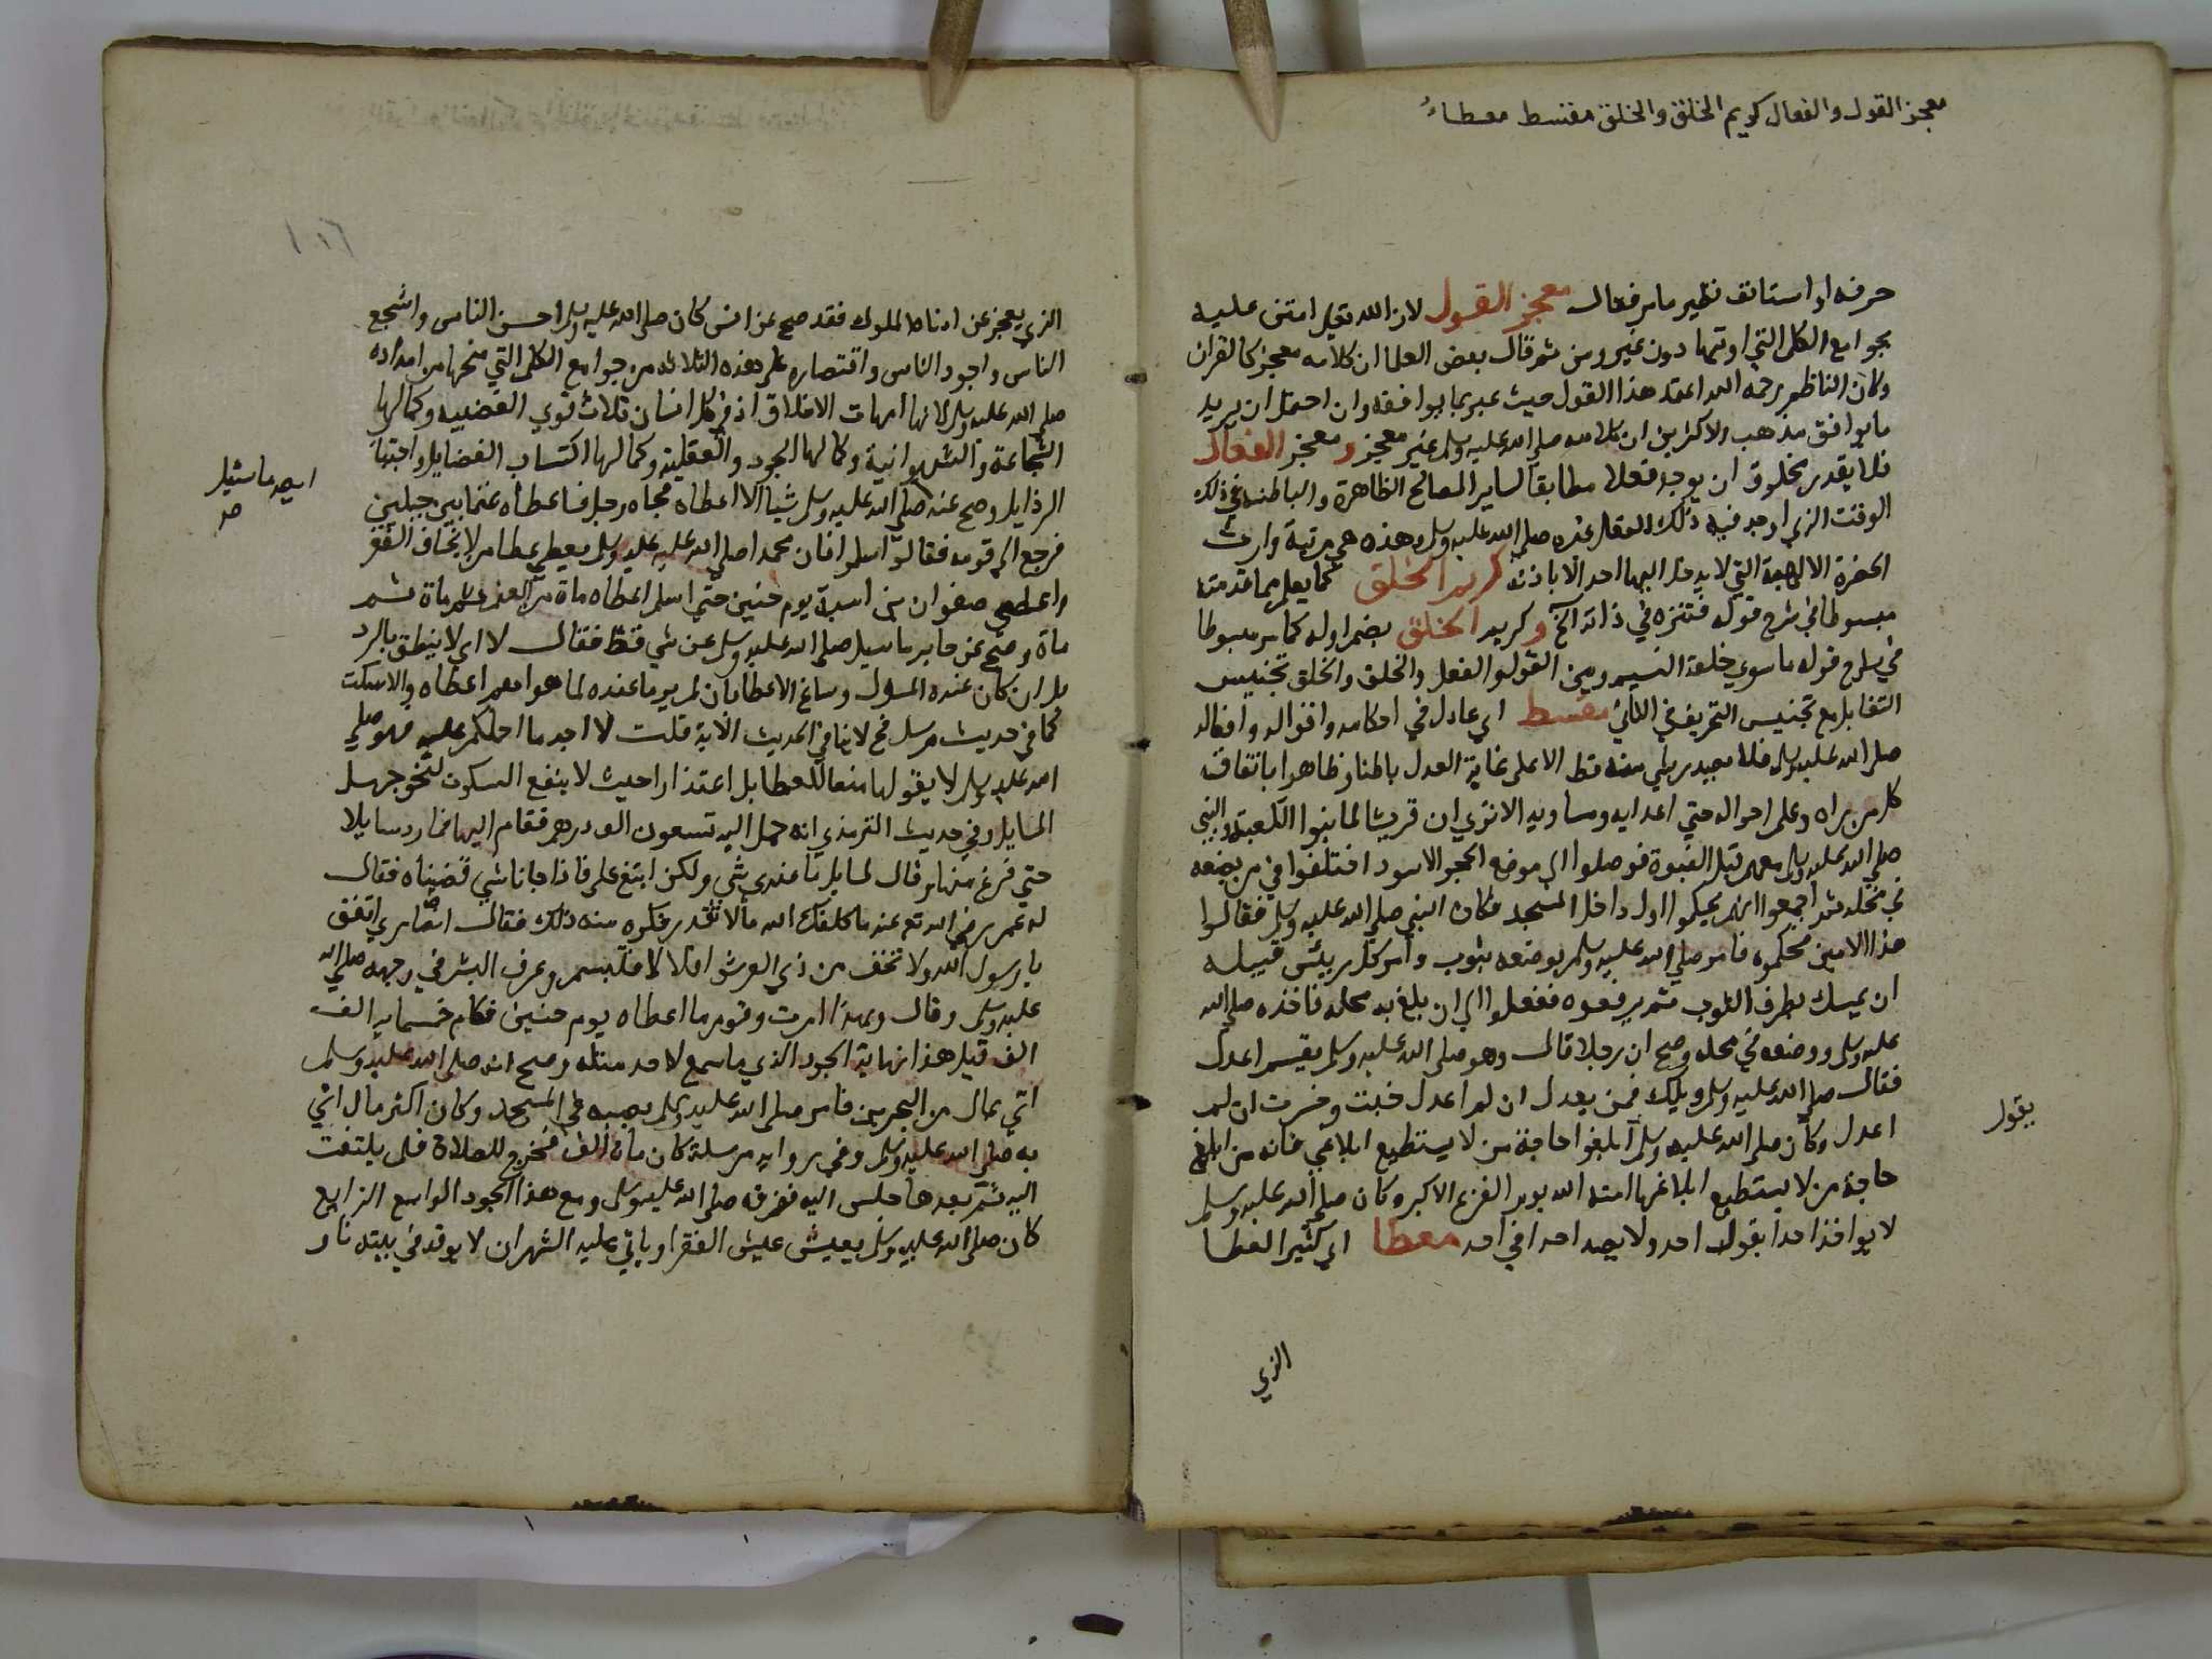 معجز القول والفعال كريم الخلق والخلق مقسط معطاء
حرفه او استانف نظير ما مر فقال معجز القول لان الله تعلى امتن عليه
بجوامع الكلم التي اوتيها دون غيره ومن ثم قال بعض العلما ان كلامه معجز كالقران
وكان الناظم رحمه الله اعتقد هذا القول حيث عبر بما يوافقه وان احتمل ان يريد
ما يوافق مذهب الاكثرين ان كلامه صلى الله عليه وسلم غير معجز ومعجز الفعال
فلا يقدر مخلوق ان يوجد فعلا مطابقا لساير المصالح الظاهرة والباطنة في ذلك
الوقت الذي اوجد فيه ذلك الفعل غيره صلى الله عليه وسلم وهذه هي مرتبة وارث
الحضرة الالهية التي لا يدخل اليها احد الا باذنه كريم الخلق كما يعلم مما قدمته
مبسوطا في شرح قوله فتنزه في ذاته الخ وكريم الخلق بضم اوله كما مر مبسوطا
في شرح قوله ما سوي خلقه النسيم وبين القول والفعل والخلق والخلق تجنيس
التقابل مع تجنيس التحريف في الثاني مقسط اي عادل في احكامه واقواله وافعاله
صلى الله عليه وسلم فلا يصدر شي منه قط الا على غاية العدل باطنا وظاهرا باتفاق
كل من راه وعلم احواله حتي اعدايه ومساويه الا تري ان قريشا لما بنوا الكعبة والنبي
صلى الله عليه وسلم معهم قبل النبوة فوصلوا الي موضع الحجر الاسود اختلفوا في من يضعه
في محله ثم اجمعوا انهم يحكموا اول داخل المسجد فكان النبي صلى الله عليه وسلم فقالوا
هذا الامين فحكموه فامر صلى الله عليه وسلم بوضعه بثوب وامر كل رييس قبيله
ان يمسك بطرف الثوب ثم يرفعوه ففعلوا الي ان بلغ به محله فاخذه صلى الله
عليه وسلم ووضعه في محله وصح ان رجلا قال وهو صلى الله عليه وسلم يقسم اعدل
فقال صلى الله عليه وسلم ويلك فمن يعدل ان لم اعدل خبت وخسرت ان لم
اعدل وكان صلى الله عليه وسلم ابلغوا حاجة من لا يستطيع ابلاغي فانه من ابلغ
يقول
حاجة من لا يستطيع ابلاغها امنه الله يوم الفزع الاكبر وكان صلى الله عليه وسلم
لا يواخذ احدا بقول احد ولا يصدق احدا في احد معطا اي كثير العطا
الذي
الذي يعجز عن ادناه الملوك فقد صح عن انس كان صلى الله عليه وسلم احسن الناس واشجع
الناس واجود الناس واقتصاره على هذه الثلاثه من جوامع الكلم التي منحها من امداده
صلى الله عليه وسلم لانها امهات الاخلاق اذ في كل انسان ثلاث قوي الغضبيه وكمالها
الشجاعة والشهوانية وكمالها الجود والعقلية وكمالها اكتساب الفضايل واجتناب
الرذايل وصح عنه صلى الله عليه وسلم شيا الا اعطاه فجاه رجل فاعطاه غنما بين جبلين
ما سئل
صح
فرجع الى قومه فقال اسلموا فان محمدا صلى الله عليه وسلم يعطي عطا من لا يخاف الفقر
واعطى صفوان بن امية يوم حنين حتي اسلم اعطاه ماة من الغنم ثم ماة ثم
ماة وصح عن جابر ما سيل صلى الله عليه وسلم عن شي قط فقال لا اي لا ينطق بالرد
بل ان كان عنده المسؤل وساغ الاعطا بان لم ير ما عنده لما هو اهم اعطاه والا سكت
كما في حديث مرسل لا ينافي الحديث الاية قلت لا اجد ما احملكم عليه فهو صلى
الله عليه وسلم لا يقولها منعا للعطا بل اعتذارا حيث لا ينفع السكوت لنحو جهل
السايل وفي حديث الترمذي انه حمل اليه تسعون الف درهم فقام اليها فما رد سايلا
حتي فرغ منها وقال لسايل ما عندي شي ولكن ابتع علي فاذا جانا شي قضيناه فقال
له عمر رضي الله تع عنه ما كلفك الله ما لا تقدر فكره منه ذلك فقال انصاري انفق
يا رسول الله ولا تخف من ذي العرش اقلالا فتبسم وعرف البشر في وجهه صلى الله
عليه وسلم وقال وبهذا امرت وقوم ما اعطاه يوم حنين فكان خمسماية الف
الف قيل هذا نهاية الجود الذي ما سمع لاحد مثله وصح انه صلى الله عليه وسلم
اتي بمال من البحرين فامر صلى الله عليه وسلم بصبه في المسجد وكان اكثر مال اتي
به صلى الله عليه وسلم وفي رواية مرسلة كان ماة الف فخرج للصلاة فلم يلتفت
اليه ثم بعدها جلس اليه ففرقه صلى الله عليه وسلم ومع هذا الجود الواسع الزايع
كان صلى الله عليه وسلم يعيش عيش الفقرا وياتي عليه الشهران لا يوقد في بيته نار